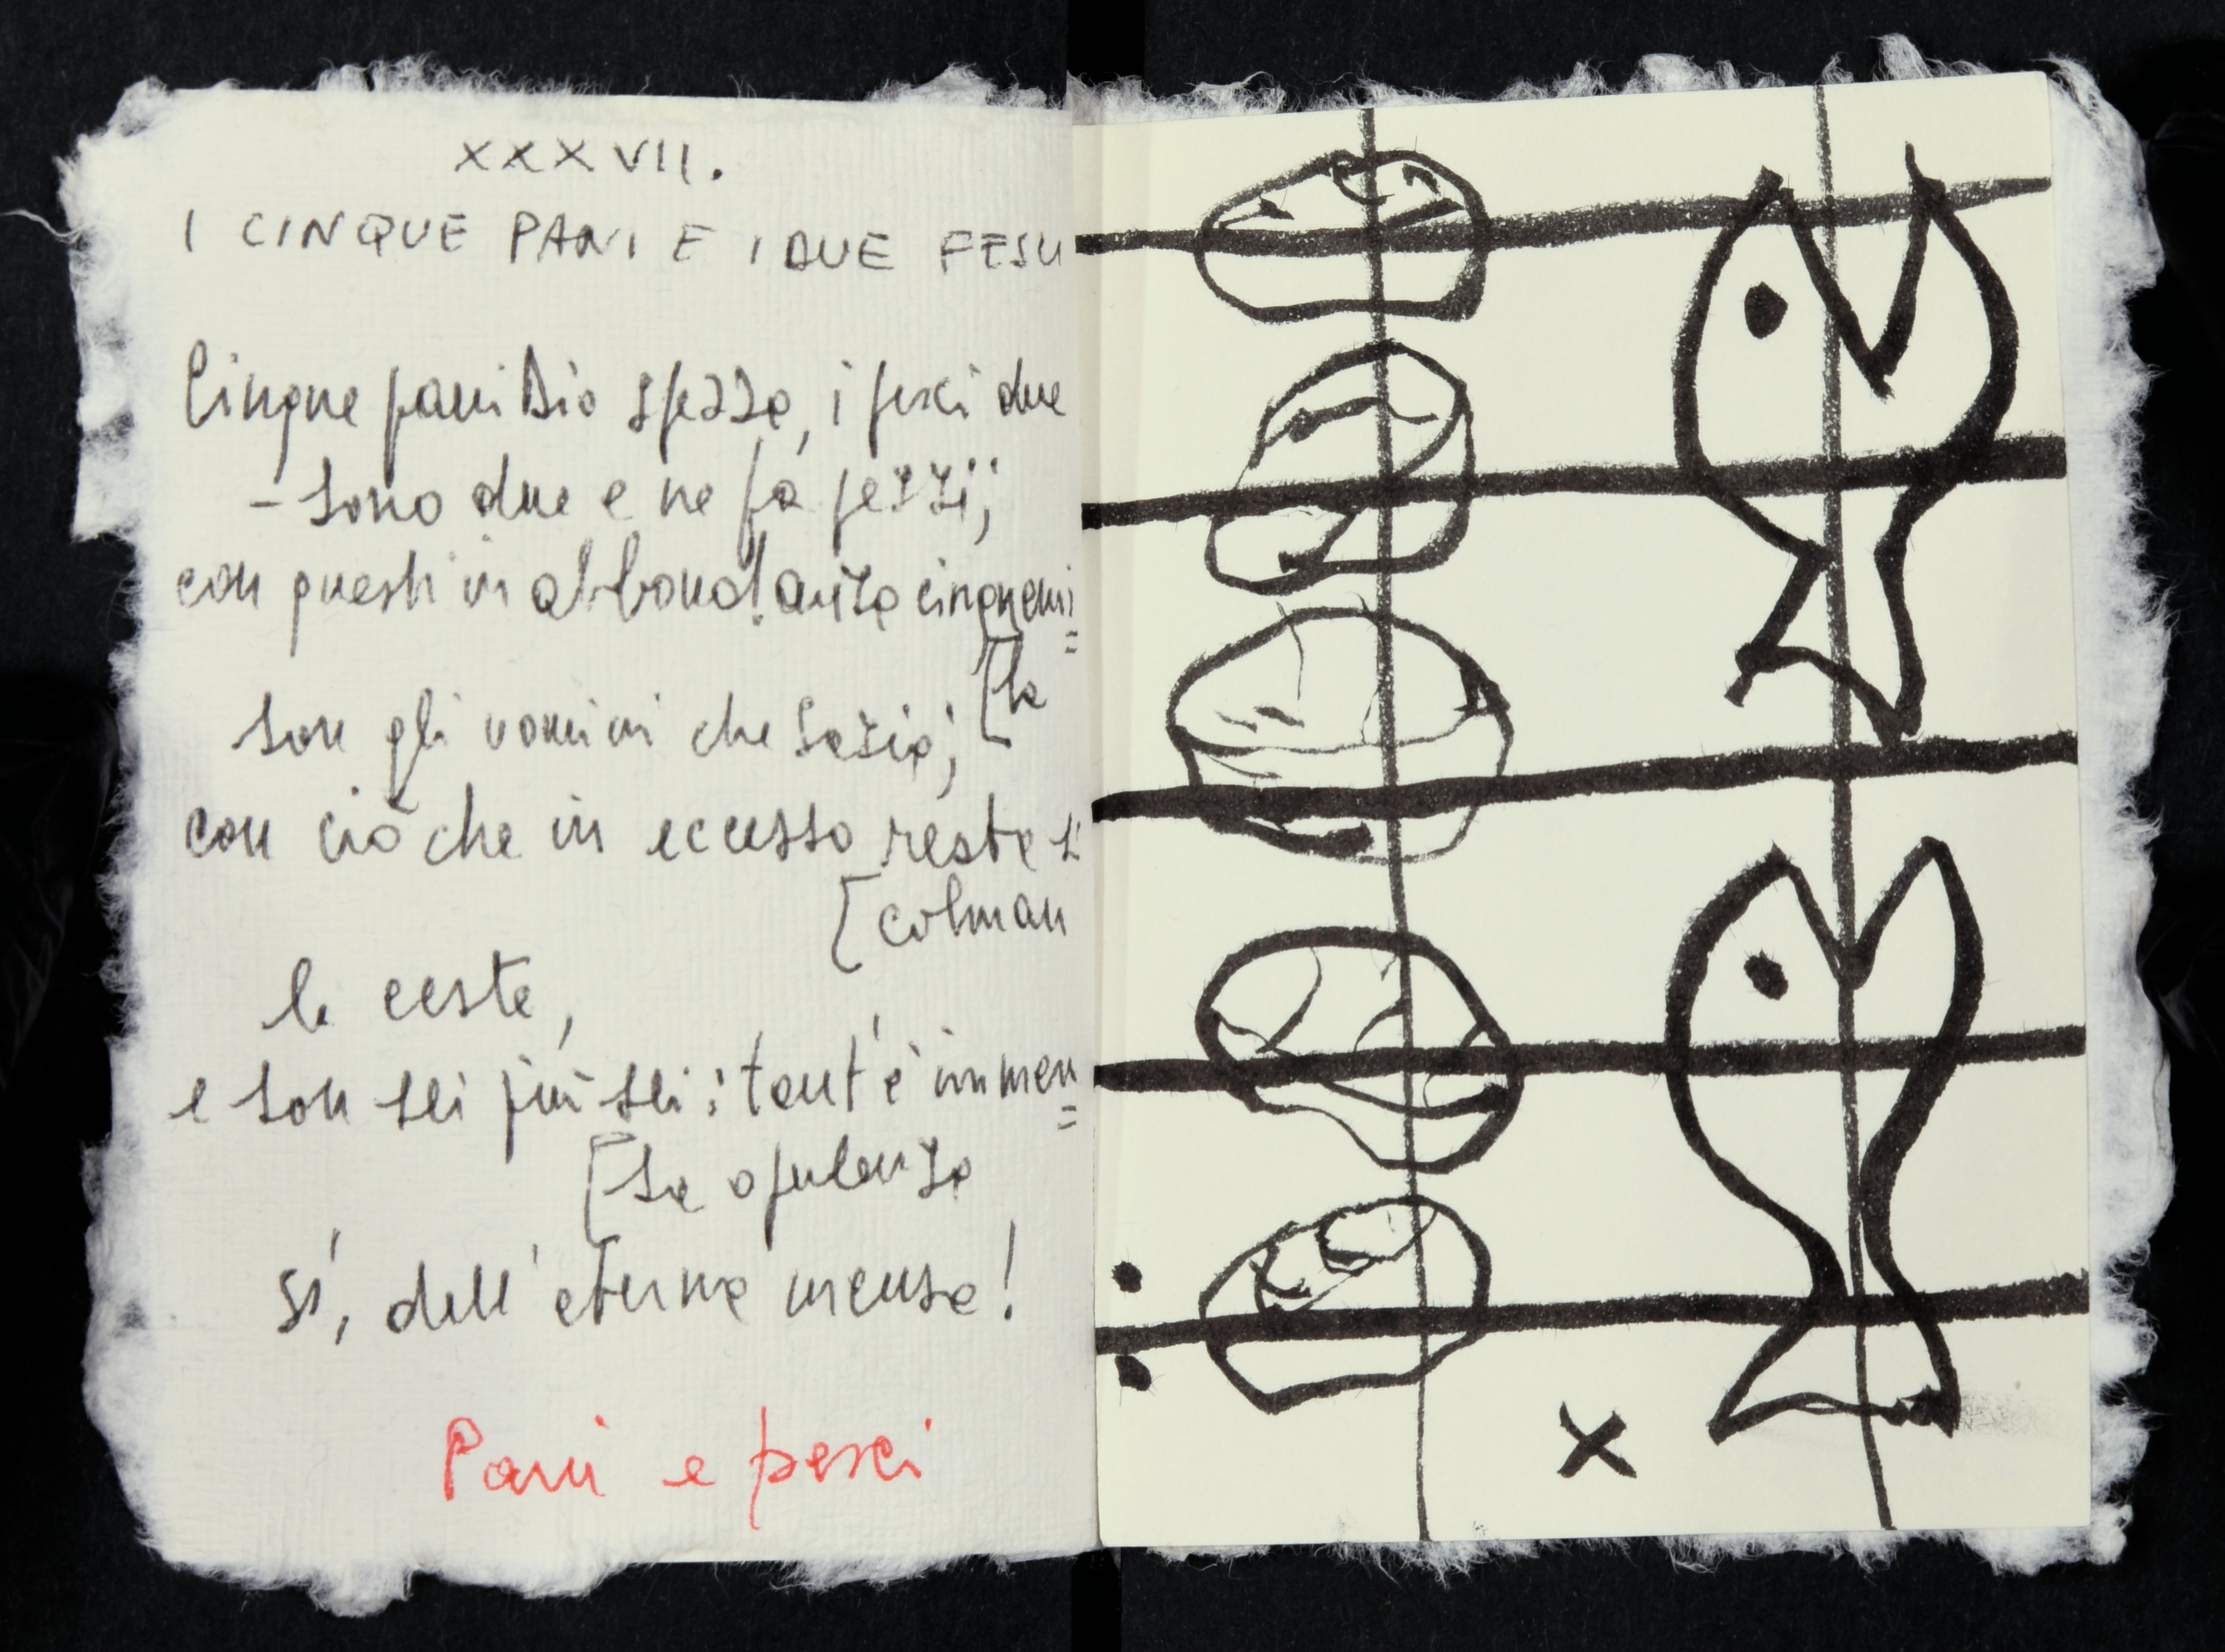 XXXVII.
I CINQUE PANI E I DUE PESCI
Cinque pani Dio spezza, i pesci due
- sono due e ne fa pezzi;
con questi in abbondanza cinquemi=
[la
son gli uomini che sazia;
con ciò che in eccesso resta si
[colman
le ceste,
e son sei più sei: tant'è immen=
[sa opulenza
sì, dell'eterna mensa!
Pani e pesci
X